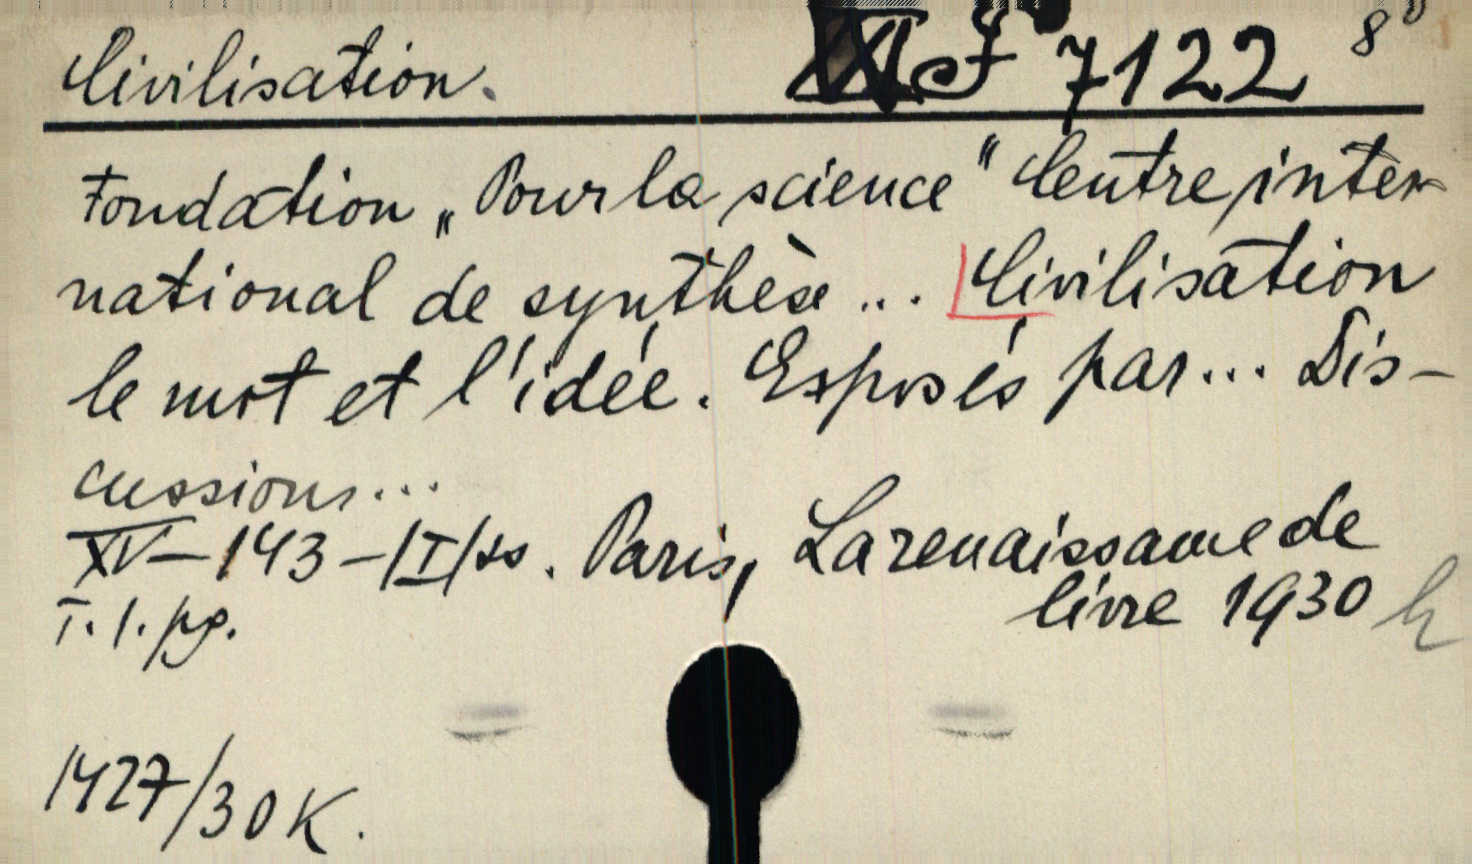 Civilisation. XXI f 7122 8°
Fondation „Pour la science" Centre inter-
national de synthèse ... Civilisation
le mot et l'idée. Exposés par... Dis-
cussions...
XV – 143 – /I/ ss. Paris, La renaissance de
livre 1930
T. 1. pg.
1427/30 K.